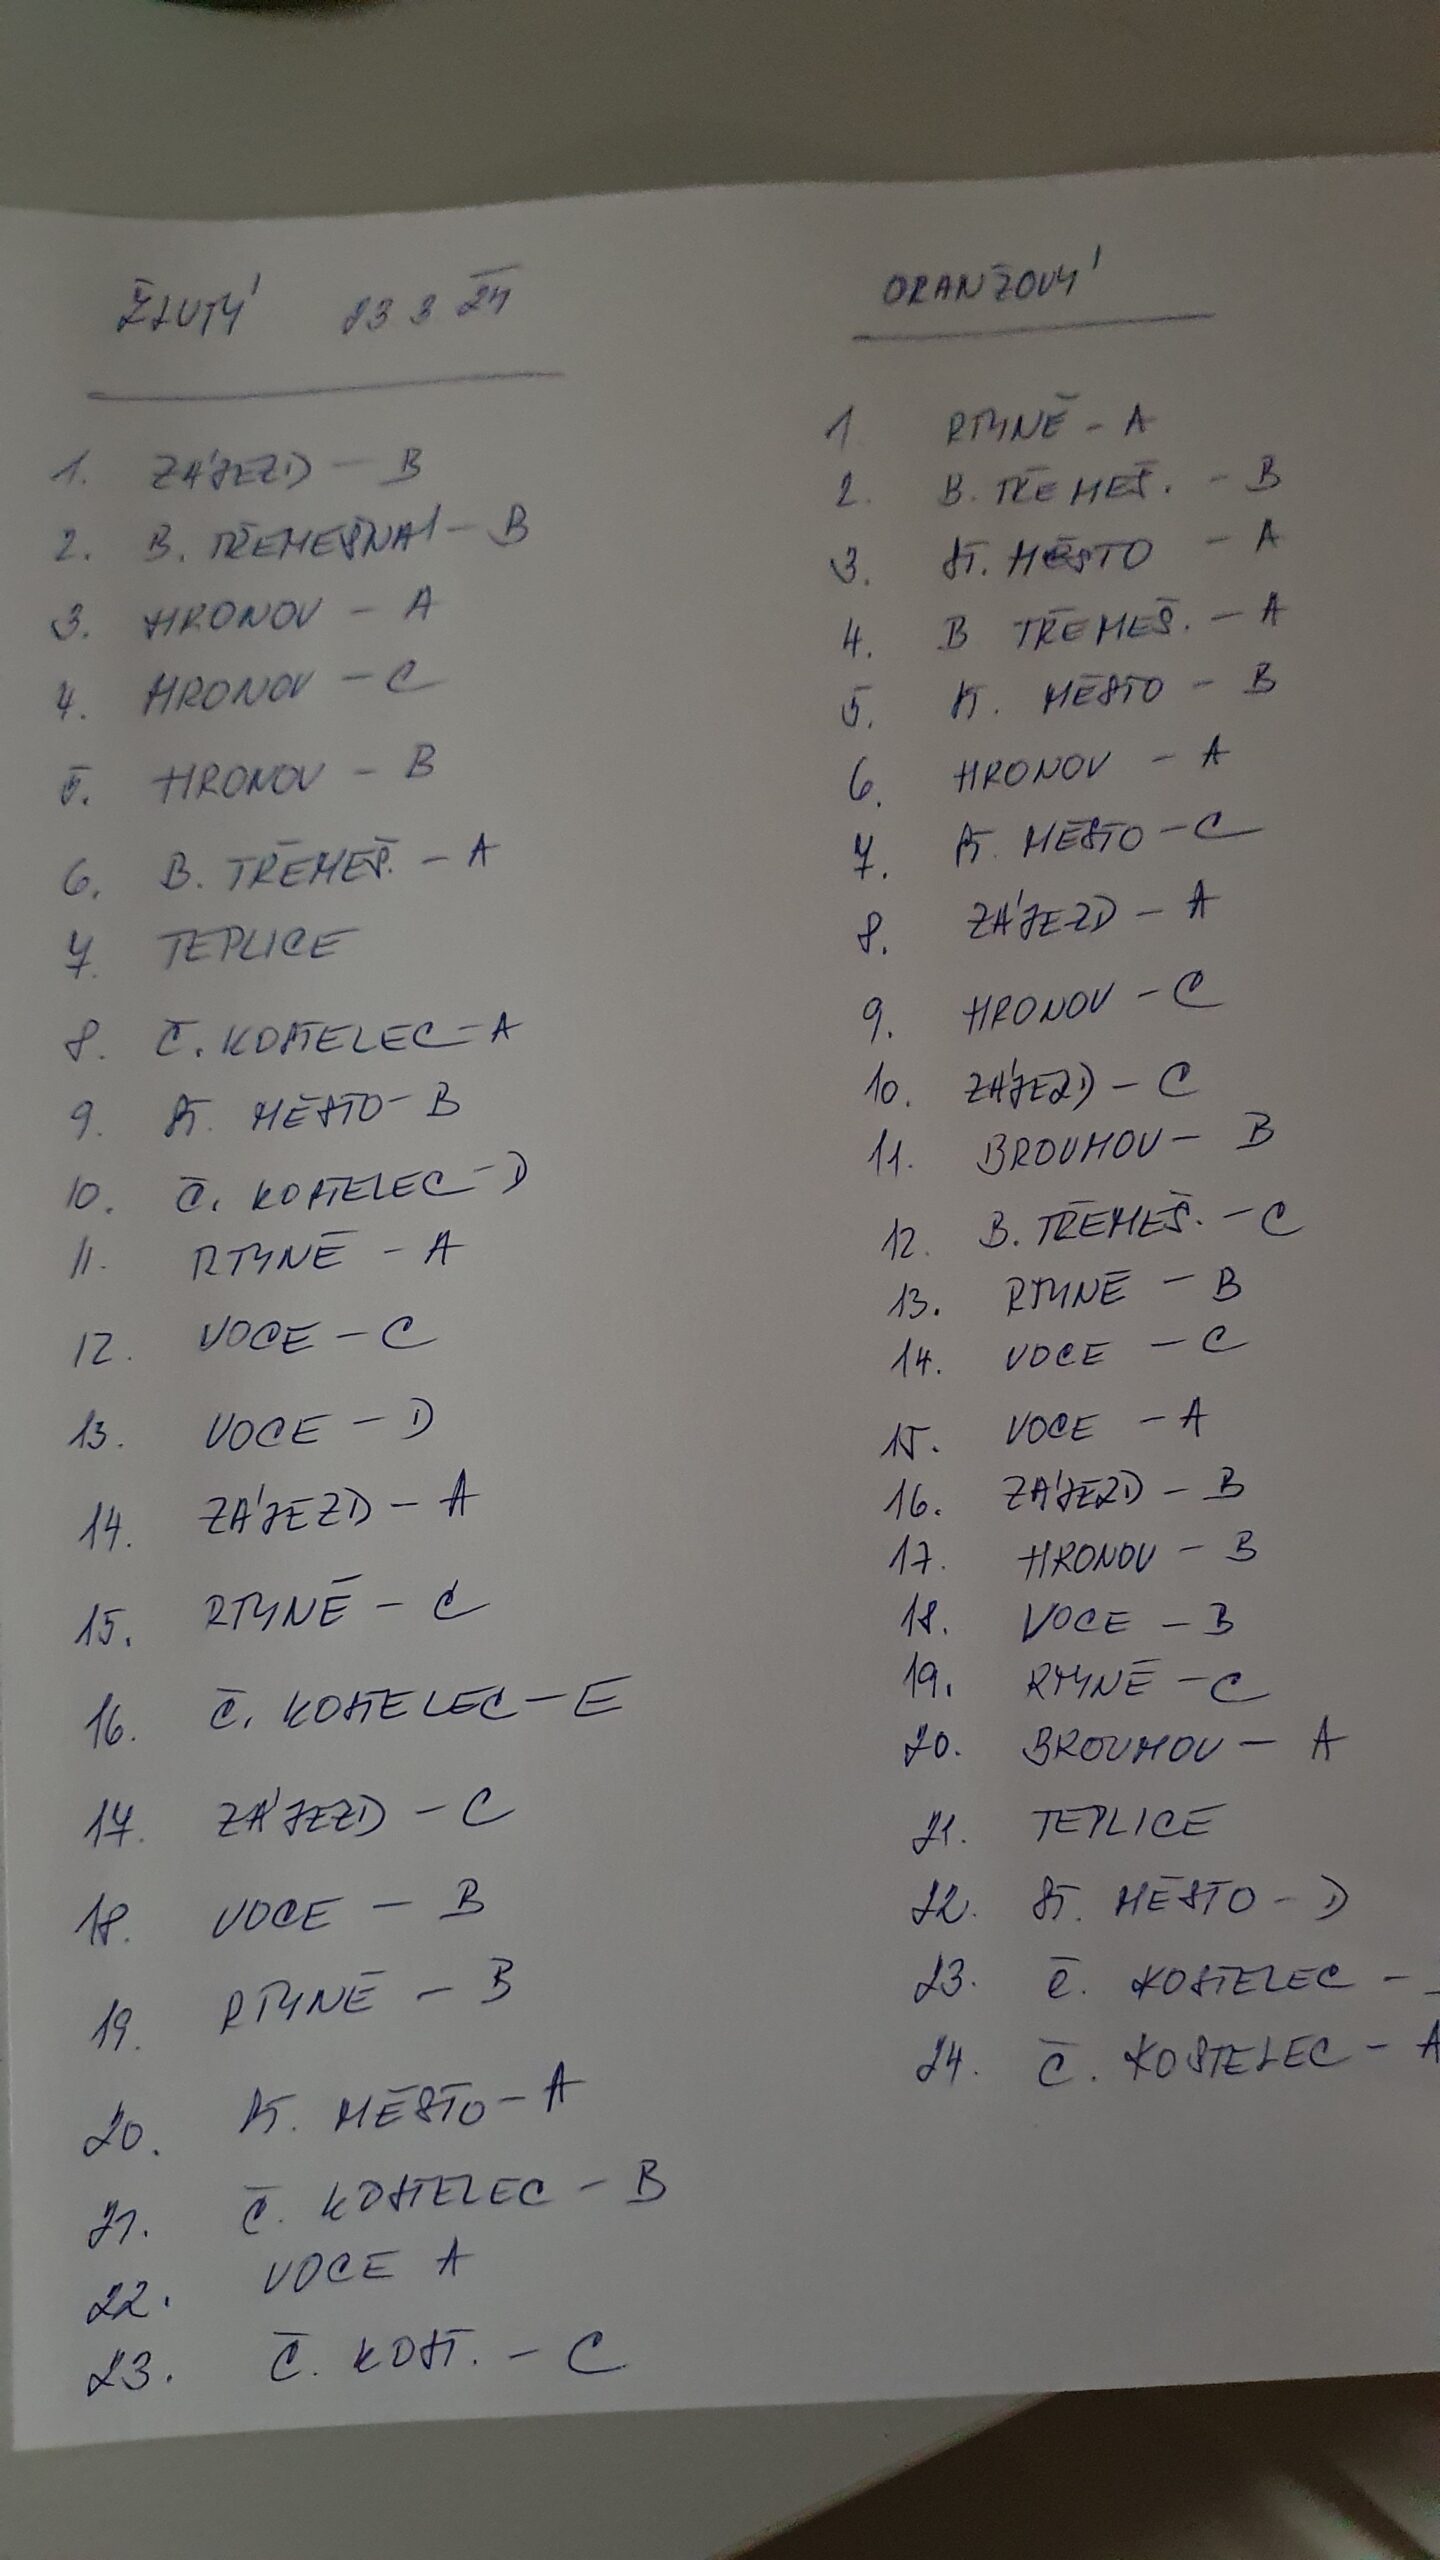 ŽLUTÝ 23 3 24
1. ZÁJEZD - B
2. B. TŘEMEŠNÁ - B
3. HRONOV - A
4. HRONOV - C
5. HRONOV - B
6. B. TŘEMEŠ. - A
7. TEPLICE
8. Č. KOSTELEC - A
9. ST. MĚSTO - B
10. Č. KOSTELEC - D
11. RTYNĚ - A
12. VOCE - C
13. VOCE - D
14. ZÁJEZD - A
15. RTYNĚ - C
16. Č. KOSTELEC - E
17. ZÁJEZD - C
18. VOCE - B
19. RTYNĚ - B
20. ST. MĚSTO - A
21. Č. KOSTELEC - B
22. VOCE A
23. Č. KOST. - C
ORANŽOVÝ
1 RTYNĚ - A
2. B. TŘEMEŠ. - B
3. ST. MĚSTO - A
4. B TŘEMEŠ. - A
5. ST. MĚSTO - B
6. HRONOV - A
7. ST. MĚSTO - C
8. ZÁJEZD - A
9. HRONOV - C
10. ZÁJEZD - C
11. BROUMOV - B
12. B. TŘEMEŠ. - C
13. RTYNĚ - B
14. VOCE - C
15. VOCE - A
16. ZÁJEZD - B
17. HRONOV - B
18. VOCE - B
19. RTYNĚ - C
20. BROUMOV - A
21. TEPLICE
22. ST. MĚSTO - D
23. Č. KOSTELEC -
24. Č. KOSTELEC - A